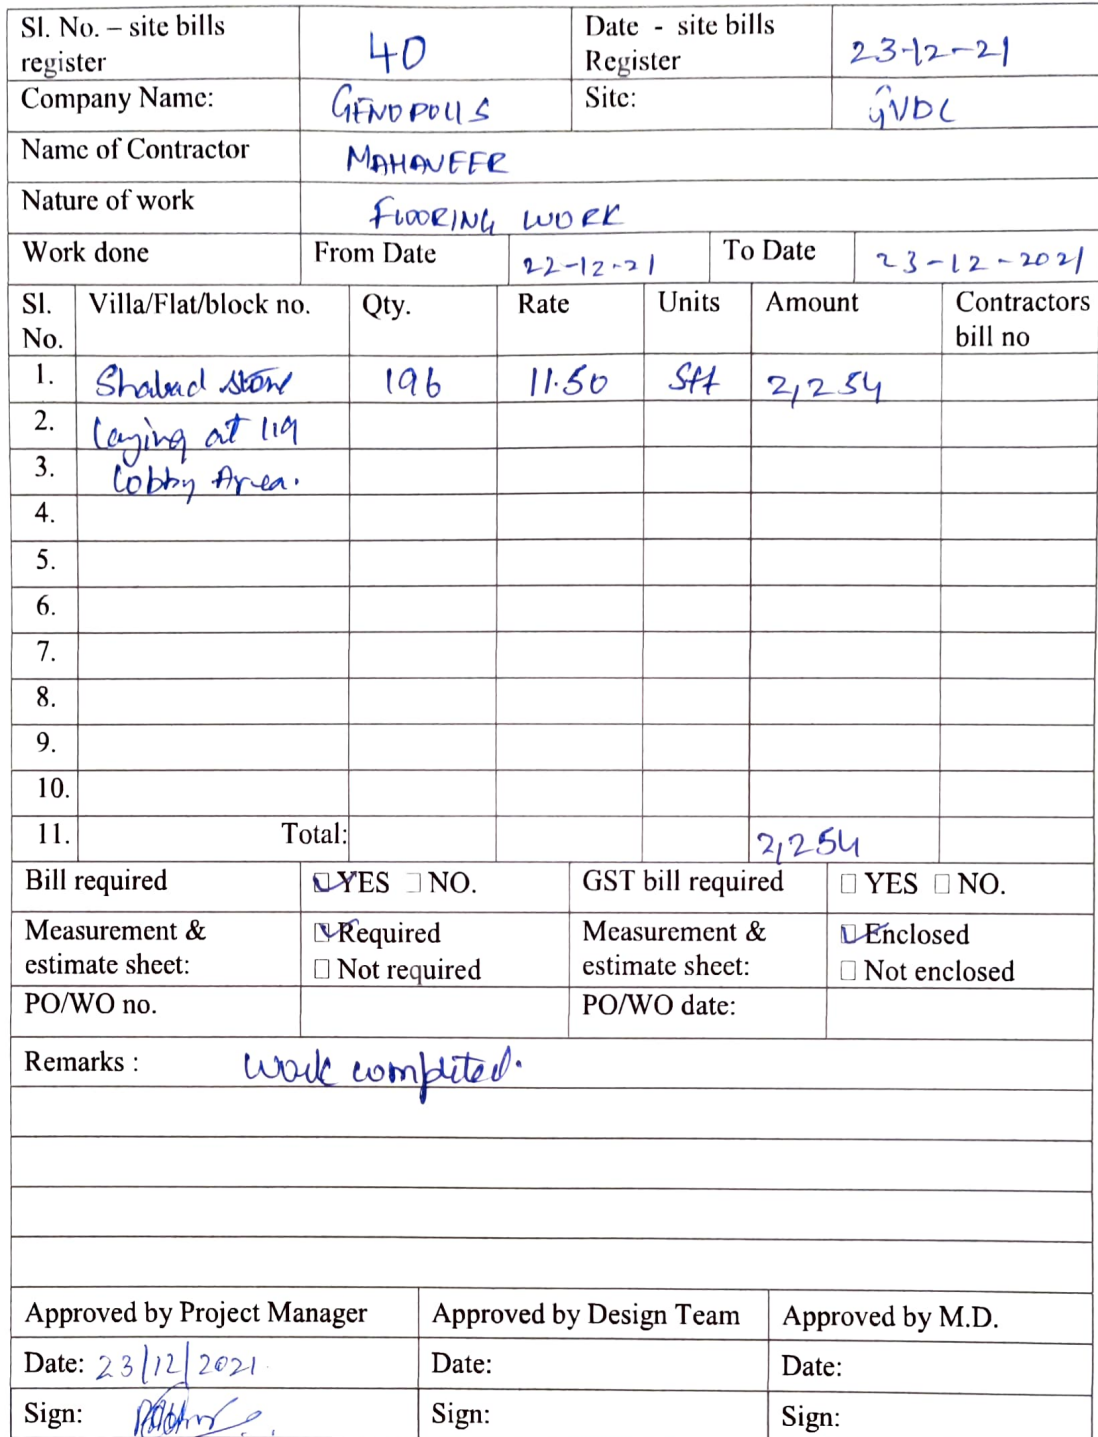 Sl. No. – site bills register 40 Date - site bills Register 23-12-21
Company Name: GENOPOLIS Site: GVDC
Name of Contractor MAHAVEER
Nature of work FLOORING WORK
Work done From Date 22-12-21 To Date 23-12-2021
Sl. No. Villa/Flat/block no. Qty. Rate Units Amount Contractors bill no
1. Shabad stone 196 11.50 Sft 2,254
2. laying at 119
3. lobby Area.
4.
5.
6.
7.
8.
9.
10.
11. Total: 2,254
Bill required ☑ YES ☐ NO. GST bill required ☐ YES ☐ NO.
Measurement & estimate sheet: ☑ Required ☐ Not required Measurement & estimate sheet: ☑ Enclosed ☐ Not enclosed
PO/WO no. PO/WO date:
Remarks : work complited.
Approved by Project Manager Approved by Design Team Approved by M.D.
Date: 23/12/2021. Date: Date:
Sign: Sign: Sign: